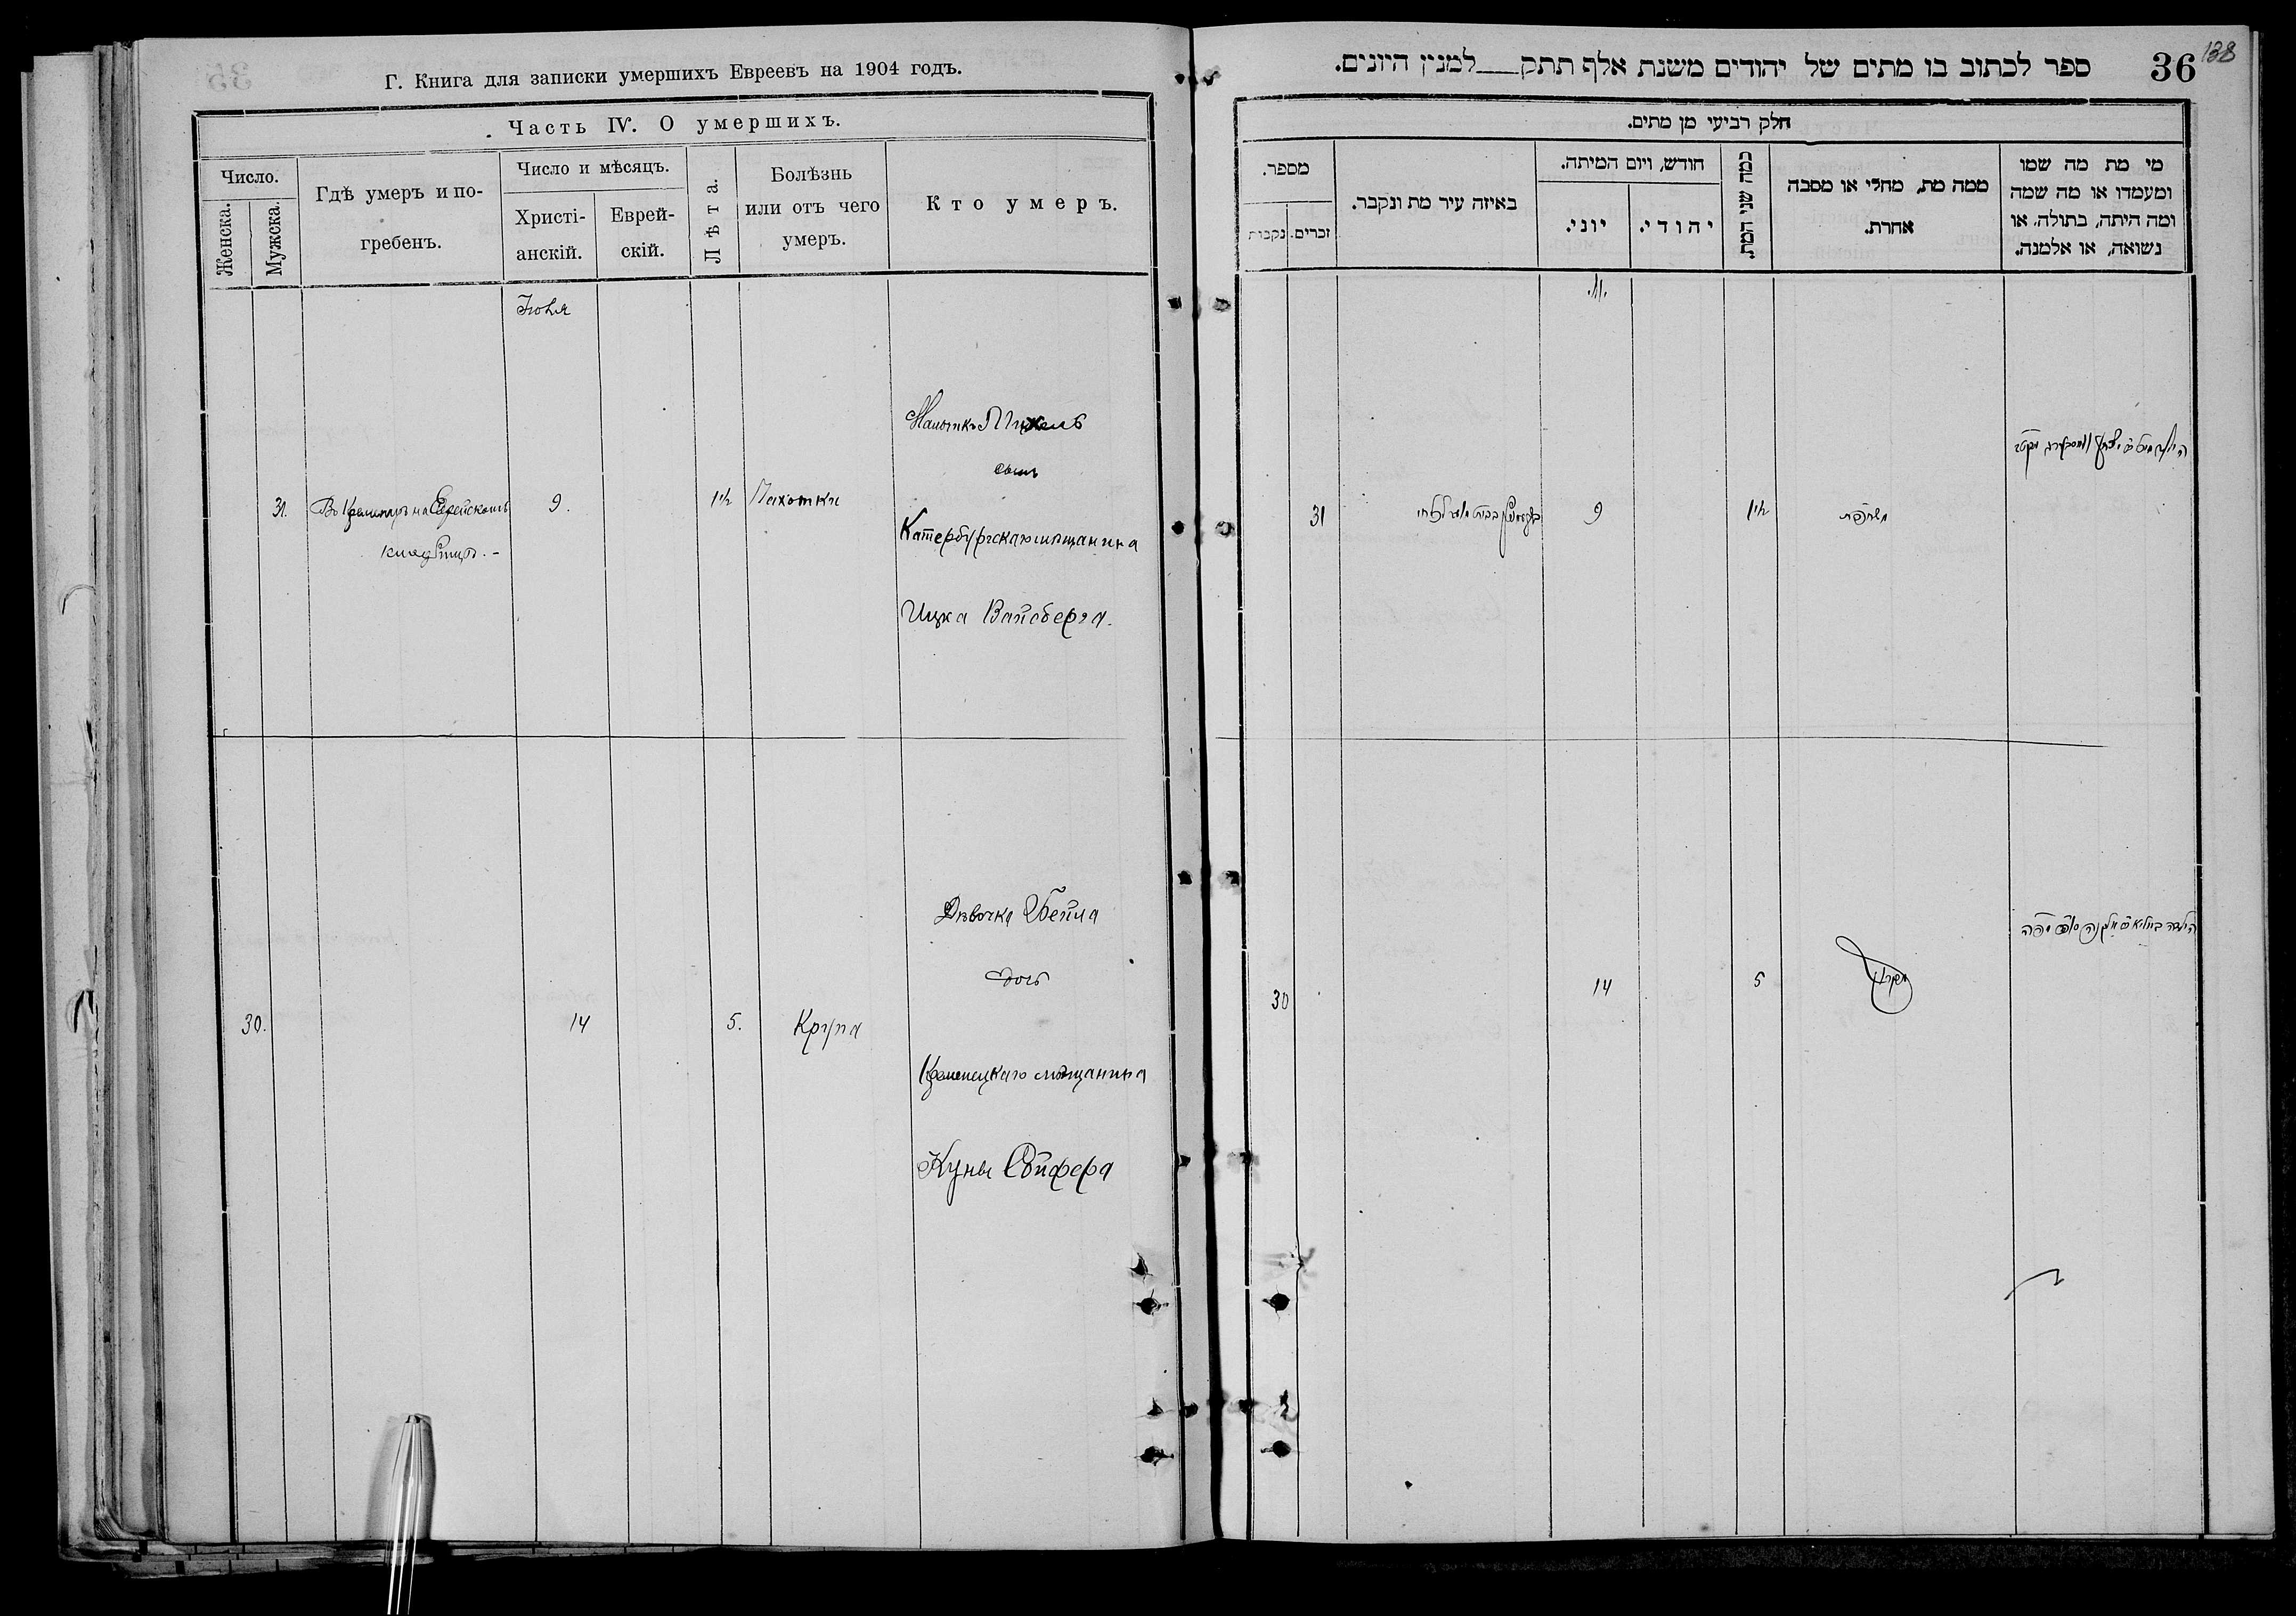 Г. Книга для записки умершихъ Евреевъ на 1904 годъ.
Часть IV. О умершихъ.
Число.
Женска.
Мужска.
Гдѣ умеръ и по-
гребенъ.
Число и мѣсяцъ.
Христі-
анскій.
Еврей-
скій.
Лѣта.
Болѣзнь
или отъ чего
умеръ.
Кто умеръ.
Іюля
31.
Въ Кременцѣ на Еврейскомъ
кладбищѣ. -
9.
1½
Чахотки
сынъ
Катербургскаго мѣщанина
Ицка Вайсберга.
30.
14
5.
Крупа
Дѣвочка Бейла
дочь
Кременецкаго мѣщанина
Куны Сойфера
36
138
ספר לכתוב בו מתים של יהודים משנת אלף תתק למנין היונים.
חלק רביעי מן מתים.
מספר.
נקבות
זכרים.
באיזה עיר מת ונקבר.
חודש, ויום המיתה.
יוני.
יהודי.
כמה שני המת.
ממה מת, מחלי או מסבה
אחרת.
מי מת מה שמו
ומעמדו או מה שמה
ומה היתה, בתולה, או
נשואה, או אלמנה.
31
9
1½
30
14
5